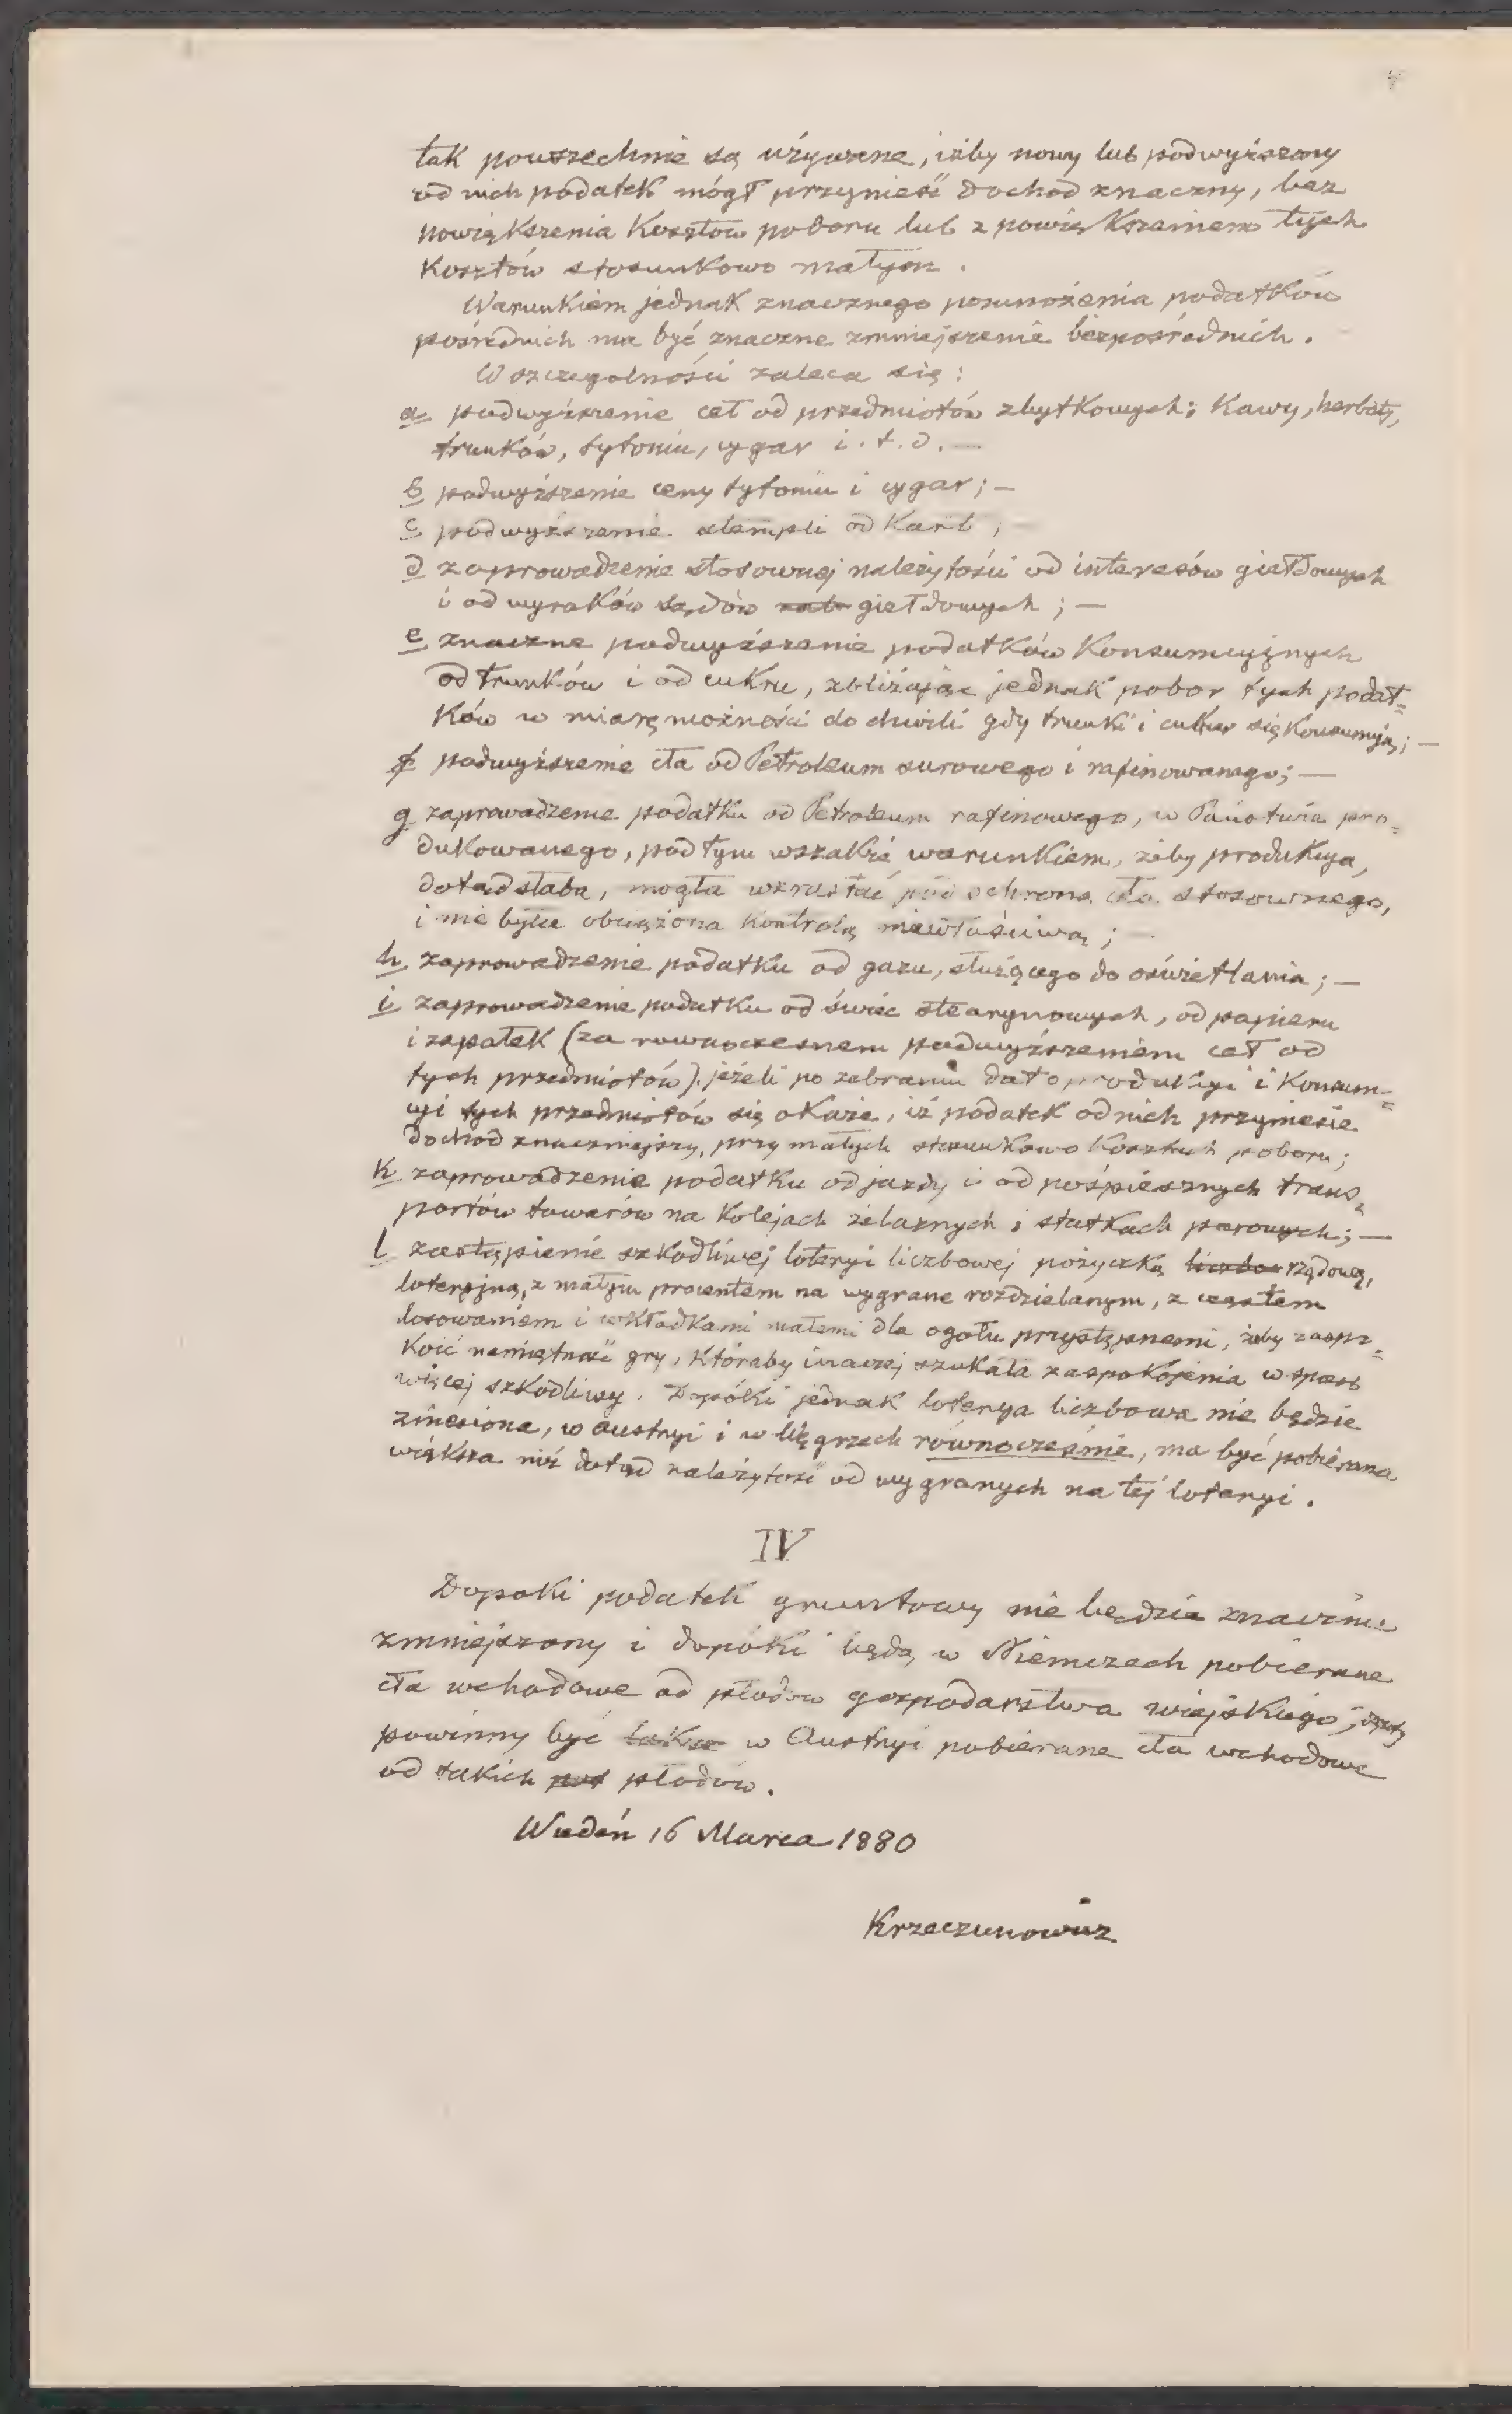 tak powszechnie są używane, iżby nowy lub podwyższony
od nich podatek mógł przynieść dochod znaczny, bez
powiększenia Kosztow poboru lub z powiększeniem tych
Kosztów stosunkowo małym.
Warunkiem jednak znacznego pomnożenia podatków
pośrednich ma być znaczne zmniejszenie bezpośrednich.
W szczególności zaleca się:
a podwyższenie ceł od przedmiotów zbytkowych: Kawy, herbaty,
trunków, tytoniu, cygar i.t.d. —
b podwyższenie ceny tytoniu i cygar; —
c podwyższenie stempli od Kart;
d zaprowadzenie stosownej należytości od interesów giełdowych
i od wyroków sądów giełdowych; —
e znaczne podwyższenie podatków Konsumcyjnych
od trunków i od cukru, zbliżając jednak pobor tych podat=
ków w miarę możności do chwili gdy trunki i cukier się Konsumują; —
f podwyższenie cła od Petroleum surowego i rafinowanego; —
g zaprowadzenie podatku od Petroleum rafinowego, w Państwie pro=
dukowanego, pod tym wszakże warunkiem, żeby produkcya,
dotąd słaba, mogła wzrastać pod ochroną cła stosownego,
i nie była obciążona Kontrolą niewłaściwą; —
h zaprowadzenie podatku od gazu, służącego do oświetlania; —
i zaprowadzenie podatku od świec stearynowych, od papieru
i zapałek (za rownoczesnem podwyższeniem ceł od
tych przedmiotów) jeżeli po zebraniu dat o produkcyi i Konsum=
cyi tych przedmiotów się okaże, iż podatek od nich przyniesie
dochod znaczniejszy, przy małych stosunkowo Kosztach poboru;
k zaprowadzenie podatku od jazdy i od pośpiesznych trans=
portów towarów na Kolejach żelaznych i statkach parowych; —
l zastąpienie szkodliwej loteryi liczbowej pożyczką rządową,
loteryjną, z małym procentem na wygrane rozdzielanym, z częstem
losowaniem i wkładkami małemi dla ogołu przystępnemi, żeby zaspo=
koić namiętność gry, Któraby inaczej szukała zaspokojenia w sposób
więcej szkodliwy. Dopóki jednak loterya liczbowa nie będzie
zniesiona, w Austryi i w Węgrzech równocześnie, ma być pobierana
większa niż dotąd należytość od wygranych na tej loteryi.
IV
Dopoki podatek gruntowy nie będzie znacznie
zmniejszony i dopóki będą w Niemczech pobierane
cła wchodowe od płodow gospodarstwa wiejskiego,
powinny być w Austryi pobierane cła wchodowe
od takich płodow.
Wiedeń 16 Marca 1880
Krzeczunowicz